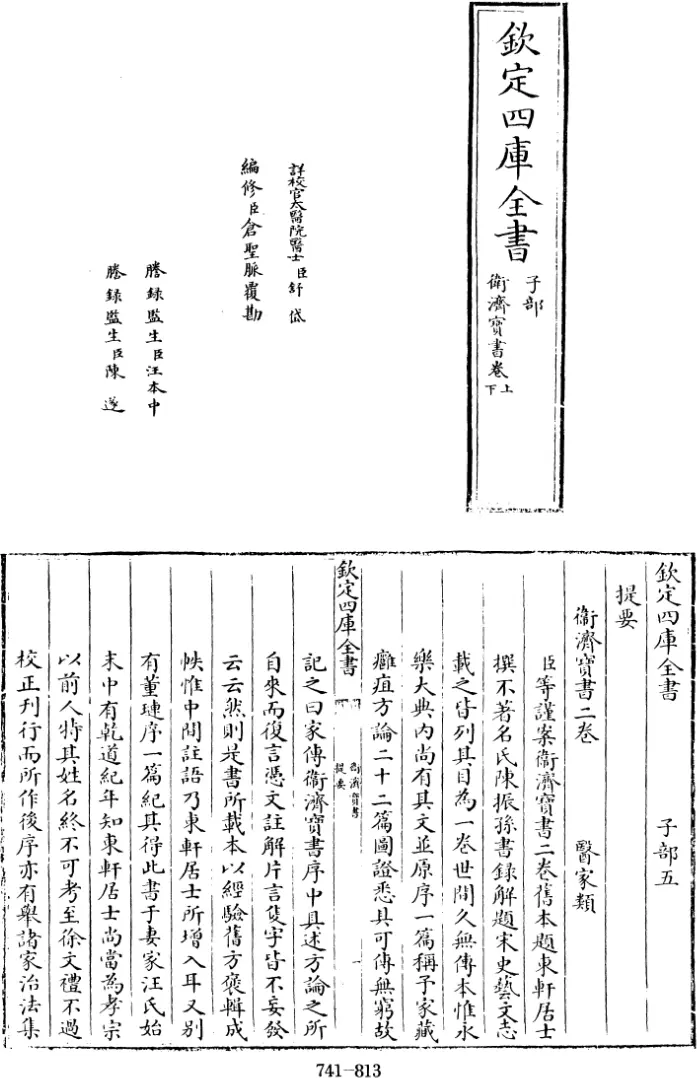 欽定四庫全書
子部
衛濟寶書卷上下
詳校官太醫院醫士臣舒岱
編修臣倉聖脈覆勘
謄錄監生臣汪本中
謄錄監生臣陳遂
欽定四庫全書 子部五
提要
衛濟寶書二卷 醫家類
臣等謹案衛濟寶書二卷舊本題東軒居士
撰不著名氏陳振孫書錄解題宋史藝文志
載之皆列其目為一卷世間久無傳本惟永
樂大典內尚有其文並原序一篇稱予家藏
癰疽方論二十二篇圖證悉具可傳無窮故
欽定四庫全書
衛濟寶書
提要
一
記之曰家傳衛濟寶書序中具述方論之所
自來而復言憑文註解片言隻字皆不妄發
云云然則是書所載本以經驗舊方裒輯成
帙惟中間註語乃東軒居士所增入耳又別
有董璉序一篇紀其得此書于妻家汪氏始
末中有乾道紀年知東軒居士尚當為孝宗
以前人特其姓名終不可考至徐文禮不過
校正刊行而所作後序亦有舉諸家治法集
741-813